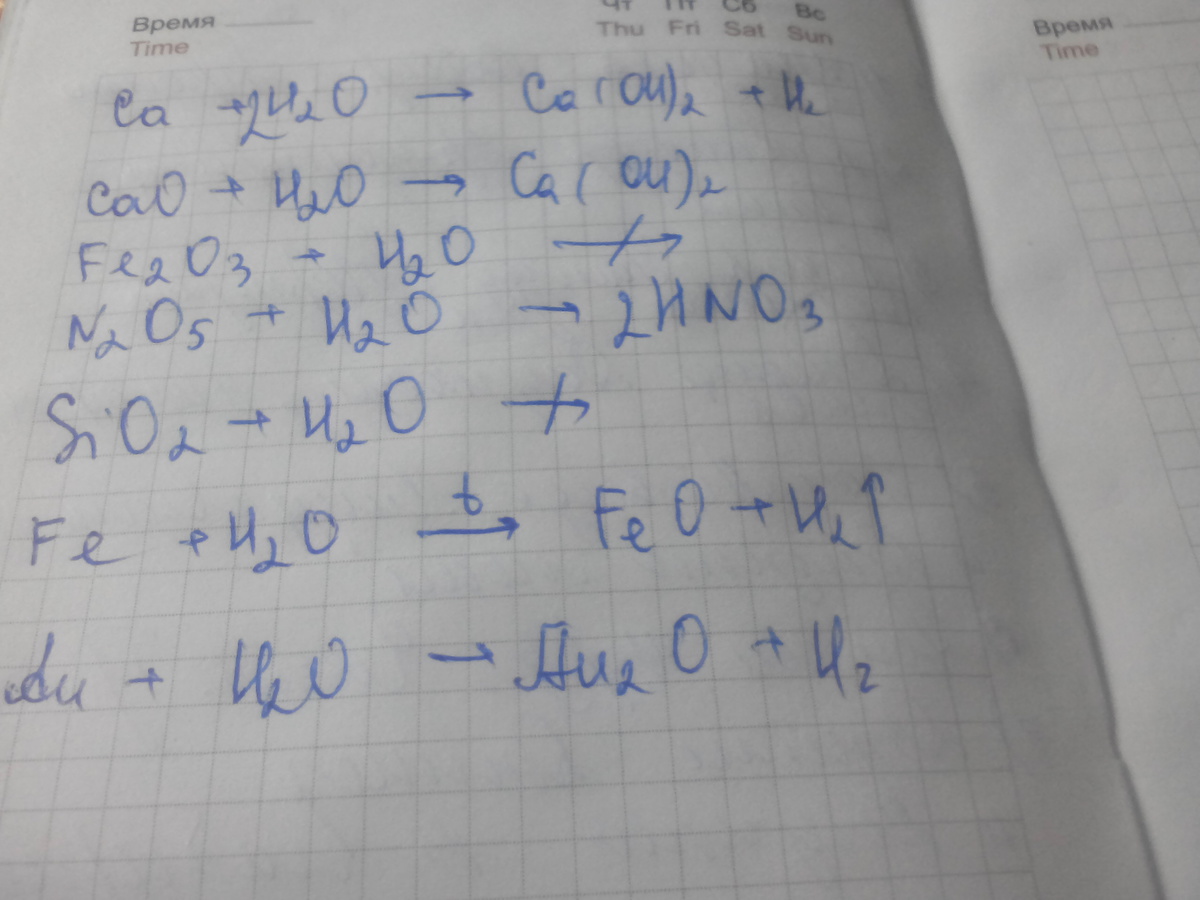 Чт Пт Сб Вс
Время
Time
Thu Fri Sat Sun
Время
Time
Ca + 2H₂O → Ca(OH)₂ + H₂
CaO + H₂O → Ca(OH)₂
Fe₂O₃ + H₂O ↛
N₂O₅ + H₂O → 2HNO₃
SiO₂ + H₂O ↛
Fe + H₂O →ᵗ FeO + H₂↑
Au + H₂O → Au₂O + H₂